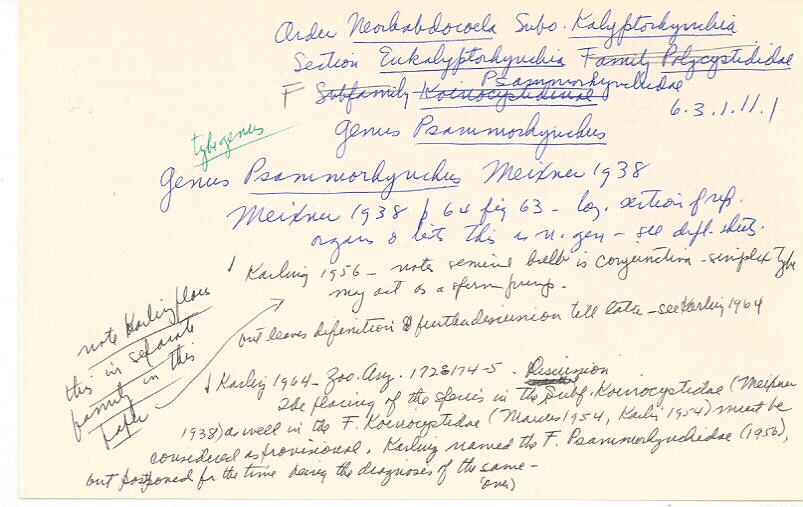 Order Neorhabdocoela Subo. Kalyptorhynchia
Section Eukalyptorhynchia Family Polycystididae
F Subfamily Koinocystidinae Psammorhynchidae
6.3.1.11.1
Genus Psammorhynchus
type genus
Genus Psammorhynchus Meixner 1938
Meixner 1938 p 64 fig 63 – log. section of rep.
organs & lists this as n. gen – see dipl. sheets.
Karling 1956 – notes seminal bulb is conjuncta – simplex type
may act as a sperm pump.
but leaves definition & further discussion till later – see Karling 1964
note Karling places
this in separate
family in this
paper
Karling 1964 – Zoo. Anz. 172: 174-5 – Discussion
The placing of the species in the Subf. Koinocystidae (Meixner
1938) as well in the F. Koinocystidae (Marcus 1954, Karli. 1954) must be
considered as provisional. Karling named the F. Psammorhynchidae (1956),
but postponed for the time being the diagnoses of the same –
over)